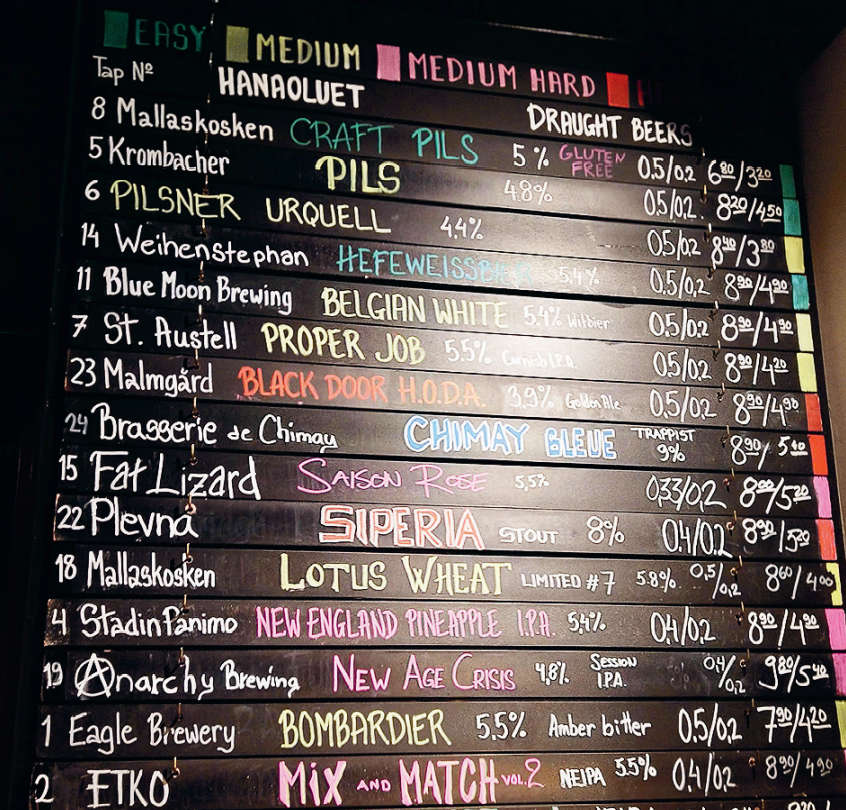 EASY MEDIUM MEDIUM HARD
Tap Nº HANAOLUET DRAUGHT BEERS
8 Mallaskosken CRAFT PILS 5% GLUTEN FREE 0.5/0.2 6⁸⁰/3²⁰
5 Krombacher PILS 4.8% 0.5/0.2. 8²⁰/4⁵⁰
6 PILSNER URQUELL 4,4% 0.5/0.2 8⁴⁰/3⁸⁰
14 Weihenstephan 5,4% 0.5/0.2 8⁹⁰/4⁹⁰
11 Blue Moon Brewing BELGIAN WHITE 5.4% Witbier 0.5/0.2 8⁹⁰/4⁹⁰
7 St. Austell PROPER JOB 5.5% Cornish I.P.A. 0.5/0.2 8⁹⁰/4²⁰
23 Malmgård BLACK DOOR H.O.D.A. 3,9% Golden Ale 0.5/0.2 8⁹⁰/4⁹⁰
24 Brasserie de Chimay CHIMAY BLEUE TRAPPIST 9% 8⁹⁰/5⁴⁰
15 Fat Lizard SAISON ROSE 5,5% 0,33/0,2 8⁰⁰/5²⁰
22 Plevna SIPERIA STOUT 8% 0.4/0.2 8⁹⁰/5²⁰
18 Mallaskosken LOTUS WHEAT LIMITED #7 5.8% 0,5/0,2 8⁶⁰/4⁰⁰
4 Stadin Panimo NEW ENGLAND PINEAPPLE I.P.A. 5,4% 0.4/0.2 8⁹⁰/4⁹⁰
19 Anarchy Brewing NEW AGE CRISIS 4,8% SESSION I.P.A. 0,4/0,2 9⁸⁰/5⁴⁰
1 Eagle Brewery BOMBARDIER 5.5% Amber bitter 0.5/0.2 7⁹⁰/4²⁰
2 ETKO MIX AND MATCH VOL.2 NEIPA 5.5% 0.4/0.2 8⁹⁰/4⁹⁰